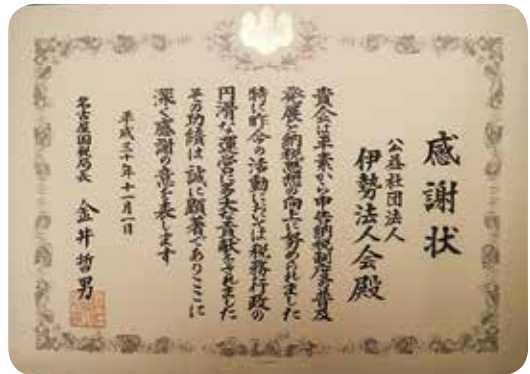 感謝状
公益社団法人
伊勢法人会殿
貴会は平素から申告納税制度の普及
発展と納税思想の向上に努められました
特に昨今の活動においては税務行政の
円滑な運営に多大な貢献をされました
その功績は誠に顕著でありここに
深く感謝の意を表します
平成三十年十一月一日
名古屋国税局長 金井哲男